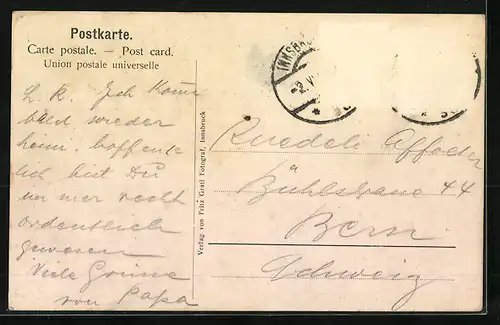 Postkarte.
Carte postale. — Post card.
Union postale universelle
L. R. Ich komme
bald wieder
heim, hoffent-
lich bist Du
immer recht
ordentlich
gewesen
Viele Grüsse
von Papa
Verlag von Fritz Gratl Fotograf, Innsbruck
INNSBR
2. V
Ruedeli Affolter
Bühlstrasse 44
Bern
Schweiz